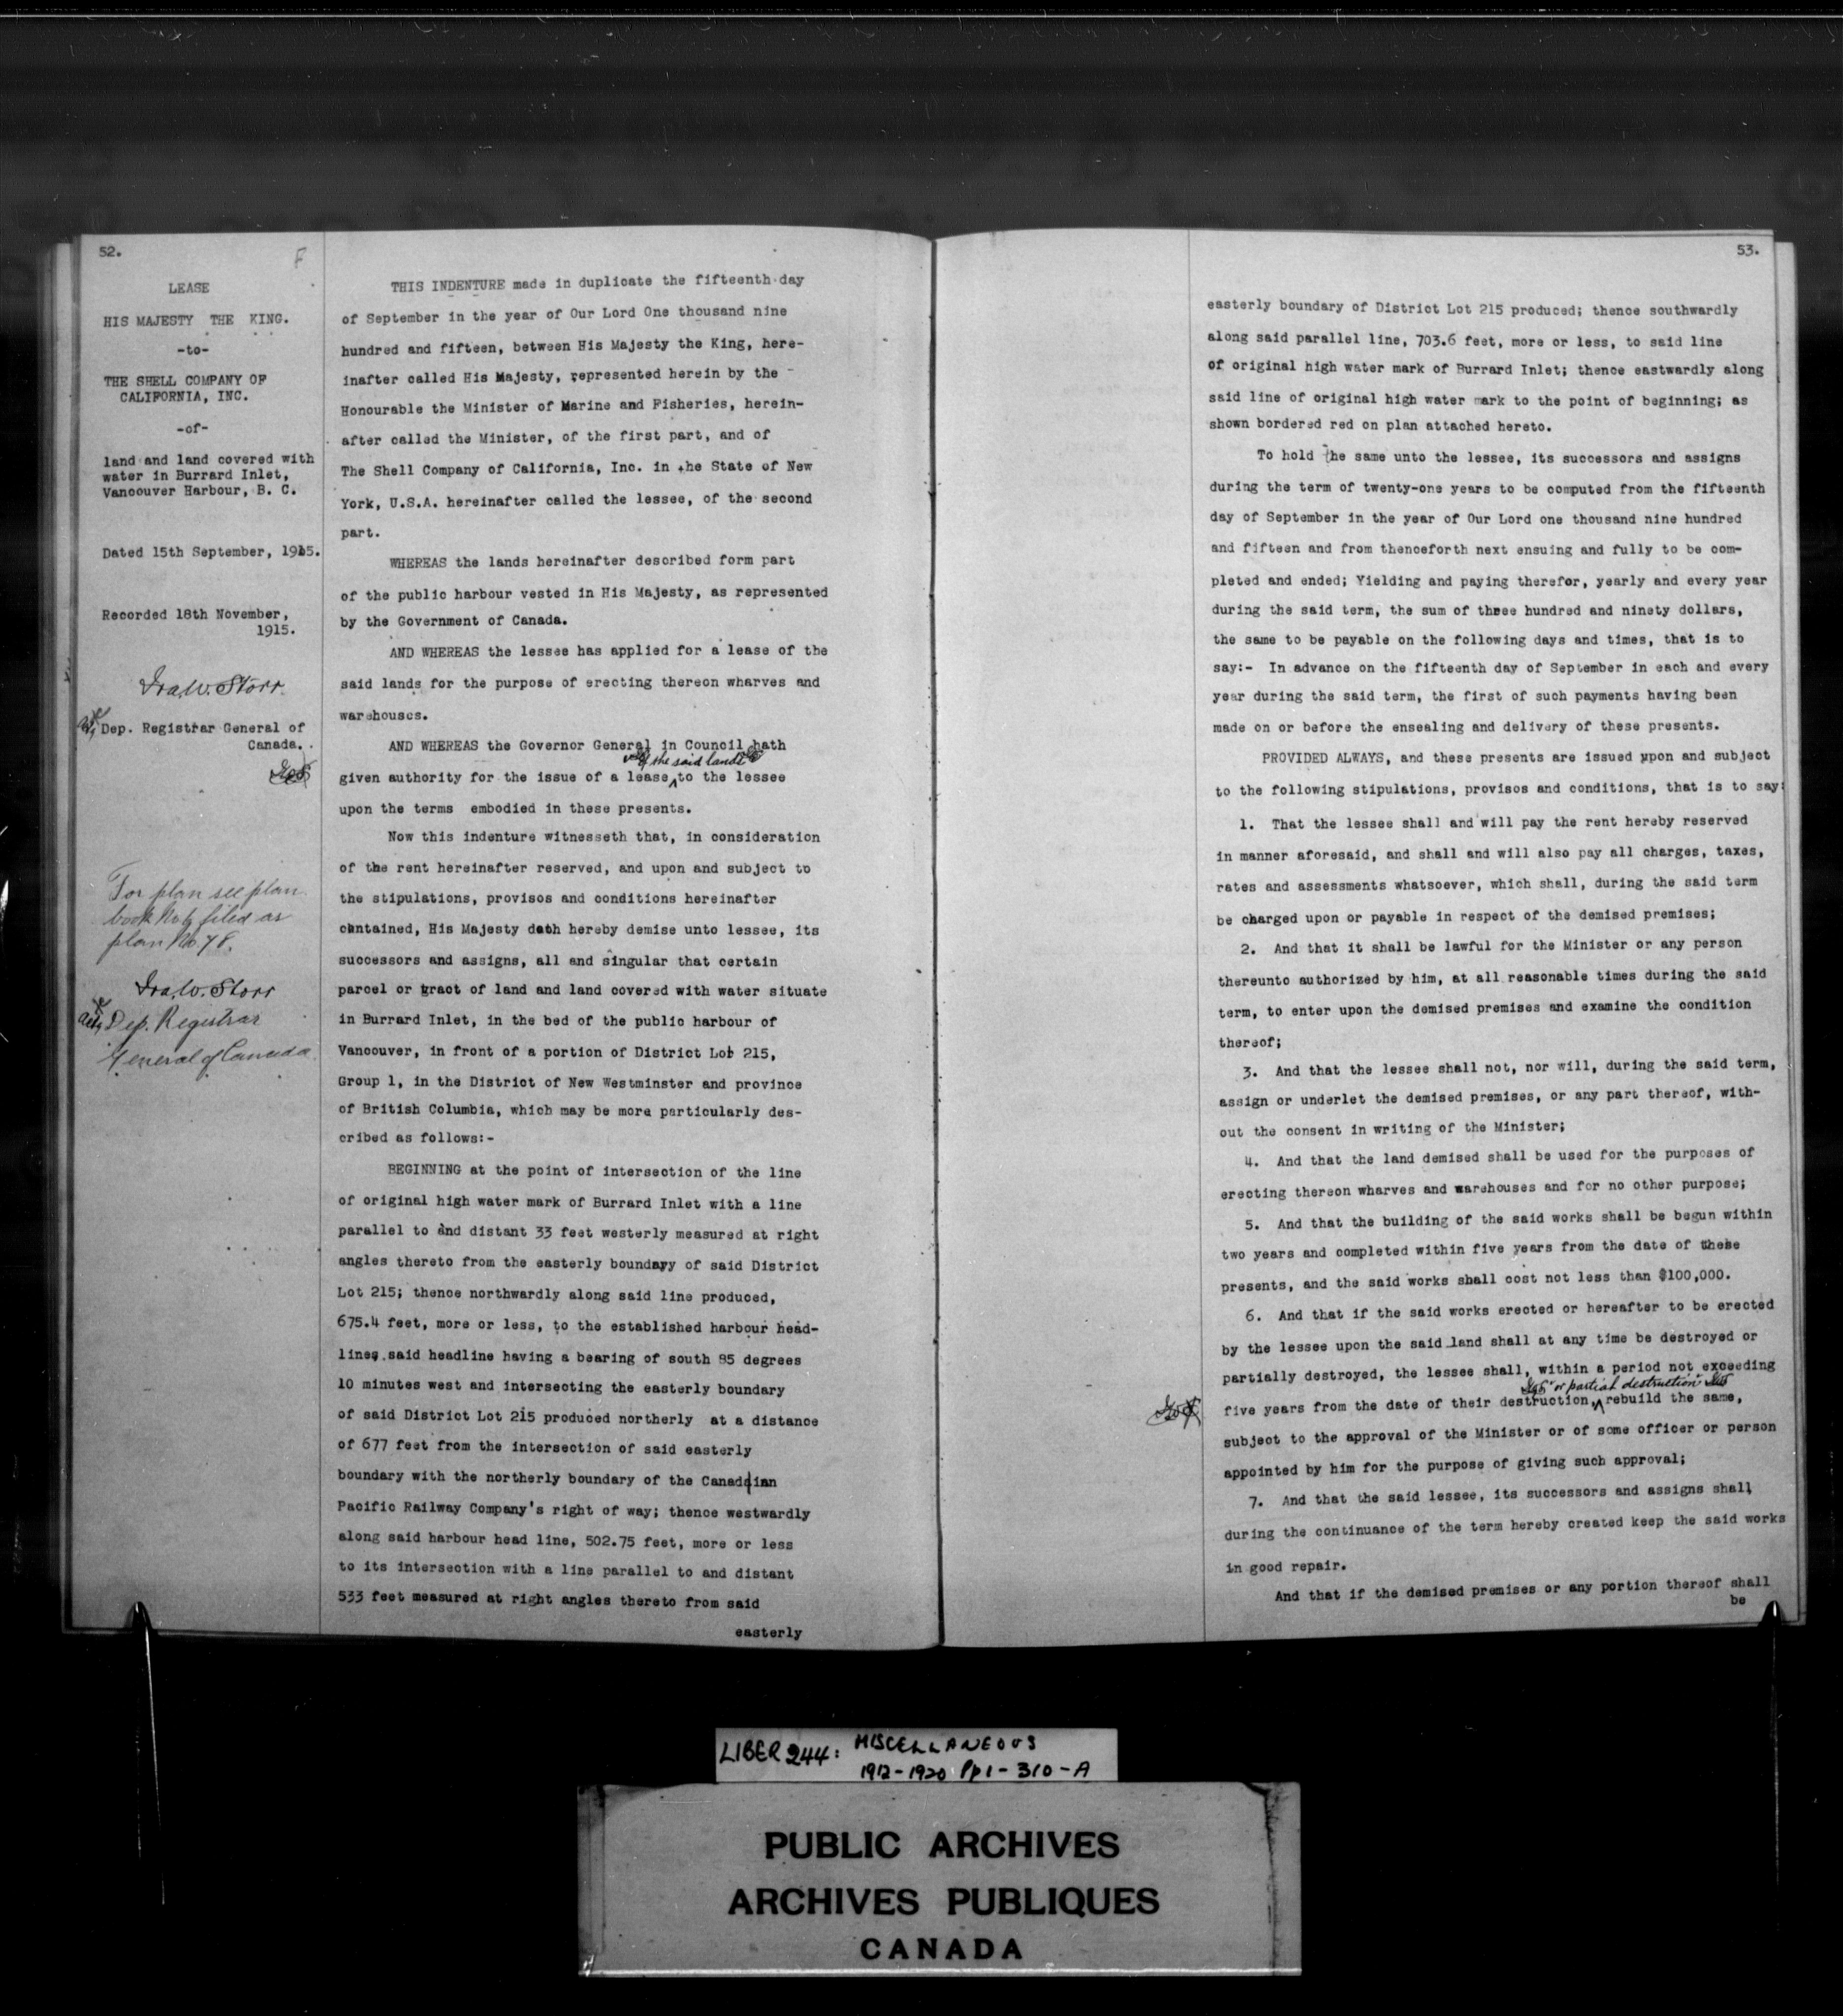 52.
F
LEASE
HIS MAJESTY THE KING.
-to-
THE SHELL COMPANY OF
CALIFORNIA, INC.
-of-
land and land covered with
water in Burrard Inlet,
Vancouver Harbour, B. C.
Dated 15th September, 1915.
Recorded 18th November,
1915.
Ira W. Storr
Dep. Registrar General of
Canada.
For plan see plan
book No 4 filed as
plan No 78.
Ira W. Storr
Actg Dep. Registrar
General of Canada.
THIS INDENTURE made in duplicate the fifteenth day
of September in the year of Our Lord One thousand nine
hundred and fifteen, between His Majesty the King, here-
inafter called His Majesty, represented herein by the
Honourable the Minister of Marine and Fisheries, herein-
after called the Minister, of the first part, and of
The Shell Company of California, Inc. in the State of New
York, U.S.A. hereinafter called the lessee, of the second
part.
WHEREAS the lands hereinafter described form part
of the public harbour vested in His Majesty, as represented
by the Government of Canada.
AND WHEREAS the lessee has applied for a lease of the
said lands for the purpose of erecting thereon wharves and
warehouses.
AND WHEREAS the Governor General in Council hath
of the said lands
given authority for the issue of a lease to the lessee
upon the terms embodied in these presents.
Now this indenture witnesseth that, in consideration
of the rent hereinafter reserved, and upon and subject to
the stipulations, provisos and conditions hereinafter
contained, His Majesty doth hereby demise unto lessee, its
successors and assigns, all and singular that certain
parcel or tract of land and land covered with water situate
in Burrard Inlet, in the bed of the public harbour of
Vancouver, in front of a portion of District Lot 215,
Group 1, in the District of New Westminster and province
of British Columbia, which may be more particularly des-
cribed as follows:-
BEGINNING at the point of intersection of the line
of original high water mark of Burrard Inlet with a line
parallel to and distant 33 feet westerly measured at right
angles thereto from the easterly boundary of said District
Lot 215; thence northwardly along said line produced,
675.4 feet, more or less, to the established harbour head-
line, said headline having a bearing of south 85 degrees
10 minutes west and intersecting the easterly boundary
of said District Lot 215 produced northerly at a distance
of 677 feet from the intersection of said easterly
boundary with the northerly boundary of the Canadian
Pacific Railway Company's right of way; thence westwardly
along said harbour head line, 502.75 feet, more or less
to its intersection with a line parallel to and distant
533 feet measured at right angles thereto from said
easterly
53.
easterly boundary of District Lot 215 produced; thence southwardly
along said parallel line, 703.6 feet, more or less, to said line
of original high water mark of Burrard Inlet; thence eastwardly along
said line of original high water mark to the point of beginning; as
shown bordered red on plan attached hereto.
To hold the same unto the lessee, its successors and assigns
during the term of twenty-one years to be computed from the fifteenth
day of September in the year of Our Lord one thousand nine hundred
and fifteen and from thenceforth next ensuing and fully to be com-
pleted and ended; Yielding and paying therefor, yearly and every year
during the said term, the sum of three hundred and ninety dollars,
the same to be payable on the following days and times, that is to
say:- In advance on the fifteenth day of September in each and every
year during the said term, the first of such payments having been
made on or before the ensealing and delivery of these presents.
PROVIDED ALWAYS, and these presents are issued upon and subject
to the following stipulations, provisos and conditions, that is to say:
1. That the lessee shall and will pay the rent hereby reserved
in manner aforesaid, and shall and will also pay all charges, taxes,
rates and assessments whatsoever, which shall, during the said term
be charged upon or payable in respect of the demised premises;
2. And that it shall be lawful for the Minister or any person
thereunto authorized by him, at all reasonable times during the said
term, to enter upon the demised premises and examine the condition
thereof;
3. And that the lessee shall not, nor will, during the said term,
assign or underlet the demised premises, or any part thereof, with-
out the consent in writing of the Minister;
4. And that the land demised shall be used for the purposes of
erecting thereon wharves and warehouses and for no other purpose;
5. And that the building of the said works shall be begun within
two years and completed within five years from the date of these
presents, and the said works shall cost not less than $100,000.
6. And that if the said works erected or hereafter to be erected
by the lessee upon the said land shall at any time be destroyed or
partially destroyed, the lessee shall, within a period not exceeding
or partial destruction
five years from the date of their destruction, rebuild the same,
subject to the approval of the Minister or of some officer or person
appointed by him for the purpose of giving such approval;
7. And that the said lessee, its successors and assigns shall
during the continuance of the term hereby created keep the said works
in good repair.
And that if the demised premises or any portion thereof shall
be
LIBER 244: MISCELLANEOUS
1912-1920 Pp 1-310-A
PUBLIC ARCHIVES
ARCHIVES PUBLIQUES
CANADA